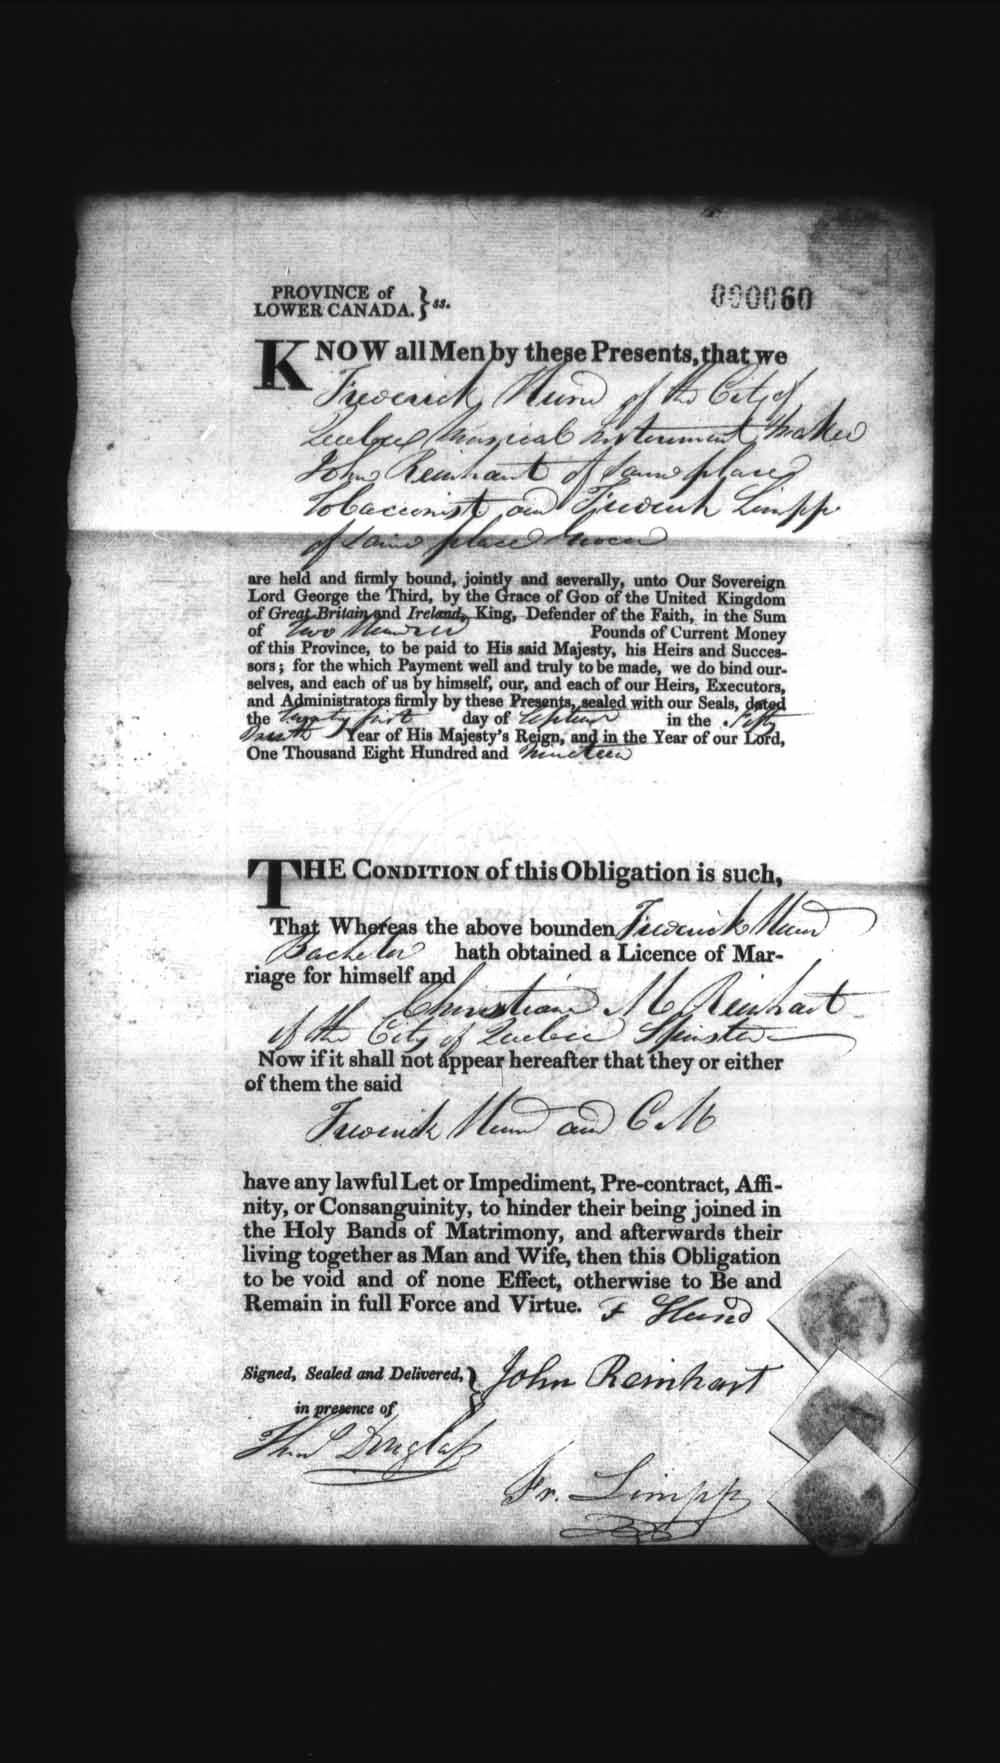 PROVINCE of
LOWER CANADA. } ss.
000060
KNOW all Men by these Presents, that we
Frederick Hund of the City of
Quebec Musical Instrument Maker
John Reinhart of same place
Tobacconist and Frederick Limpp
of same place Grocer
are held and firmly bound, jointly and severally, unto Our Sovereign
Lord George the Third, by the Grace of GOD of the United Kingdom
of Great Britain and Ireland, King, Defender of the Faith, in the Sum
of Two Hundred Pounds of Current Money
of this Province, to be paid to His said Majesty, his Heirs and Succes-
sors; for the which Payment well and truly to be made, we do bind our-
selves, and each of us by himself, our, and each of our Heirs, Executors,
and Administrators firmly by these Presents, sealed with our Seals, dated
the Twenty first day of in the Fifty
Year of His Majesty's Reign, and in the Year of our Lord,
One Thousand Eight Hundred and Nineteen
THE CONDITION of this Obligation is such,
That Whereas the above bounden Frederick Hund
Bachelor hath obtained a Licence of Mar-
riage for himself and
Christiana M Reinhart
of the City of Quebec Spinster
Now if it shall not appear hereafter that they or either
of them the said
Frederick Hund and C M
have any lawful Let or Impediment, Pre-contract, Affi-
nity, or Consanguinity, to hinder their being joined in
the Holy Bands of Matrimony, and afterwards their
living together as Man and Wife, then this Obligation
to be void and of none Effect, otherwise to Be and
Remain in full Force and Virtue.
F Hund
Signed, Sealed and Delivered, }
John Reinhart
in presence of
Thos Douglass
Fr. Limpp